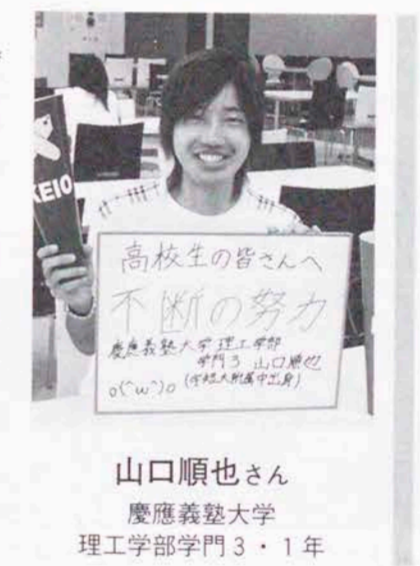 KEIO
高校生の皆さんへ
不断の努力
慶應義塾大学理工学部
学門3 山口順也
o(^ω^)o
山口順也さん
慶應義塾大学
理工学部学門3・1年